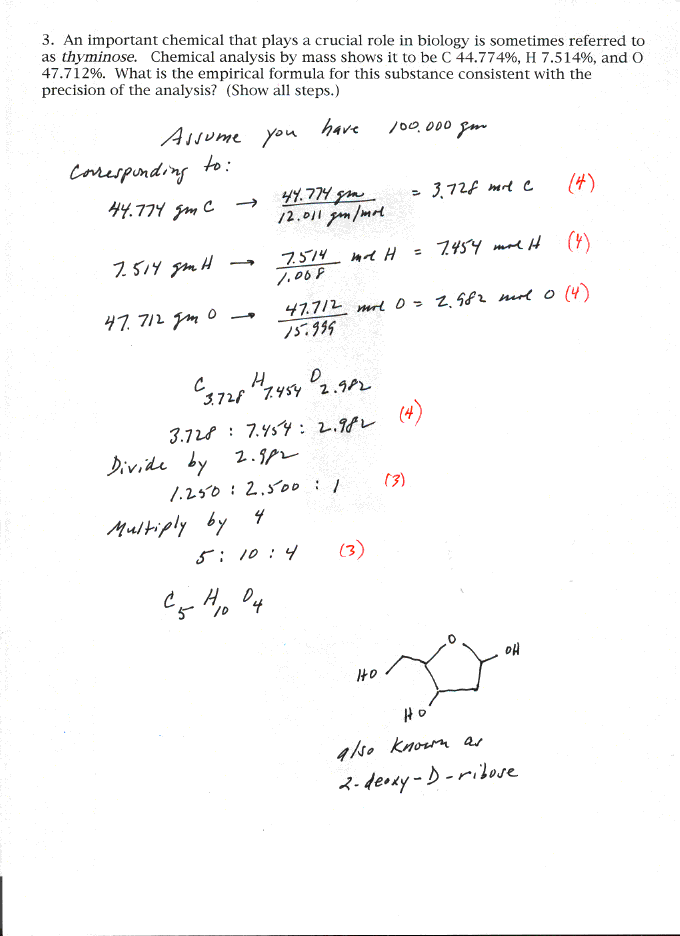 3. An important chemical that plays a crucial role in biology is sometimes referred to
as thyminose. Chemical analysis by mass shows it to be C 44.774%, H 7.514%, and O
47.712%. What is the empirical formula for this substance consistent with the
precision of the analysis? (Show all steps.)
Assume you have 100.000 gm
Corresponding to:
44.774 gm C → 44.774 gm / 12.011 gm/mol = 3.728 mol C (4)
7.514 gm H → 7.514 / 1.008 mol H = 7.454 mol H (4)
47.712 gm O → 47.712 / 15.999 mol O = 2.982 mol O (4)
C3.728 H7.454 O2.982
3.728 : 7.454 : 2.982 (4)
Divide by 2.982
1.250 : 2.500 : 1 (3)
Multiply by 4
5 : 10 : 4 (3)
C5 H10 O4
O
OH
HO
HO
also known as
2-deoxy-D-ribose